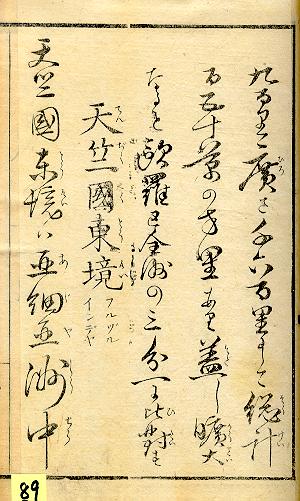 廣さ千六百里にして總計
百五十萬の方里あり蓋し曠大
なること歐羅巴全洲の三分一に比對す
天竺國東境 フルゾル インデヤ
天竺國東境ハ亜細亜洲中
89